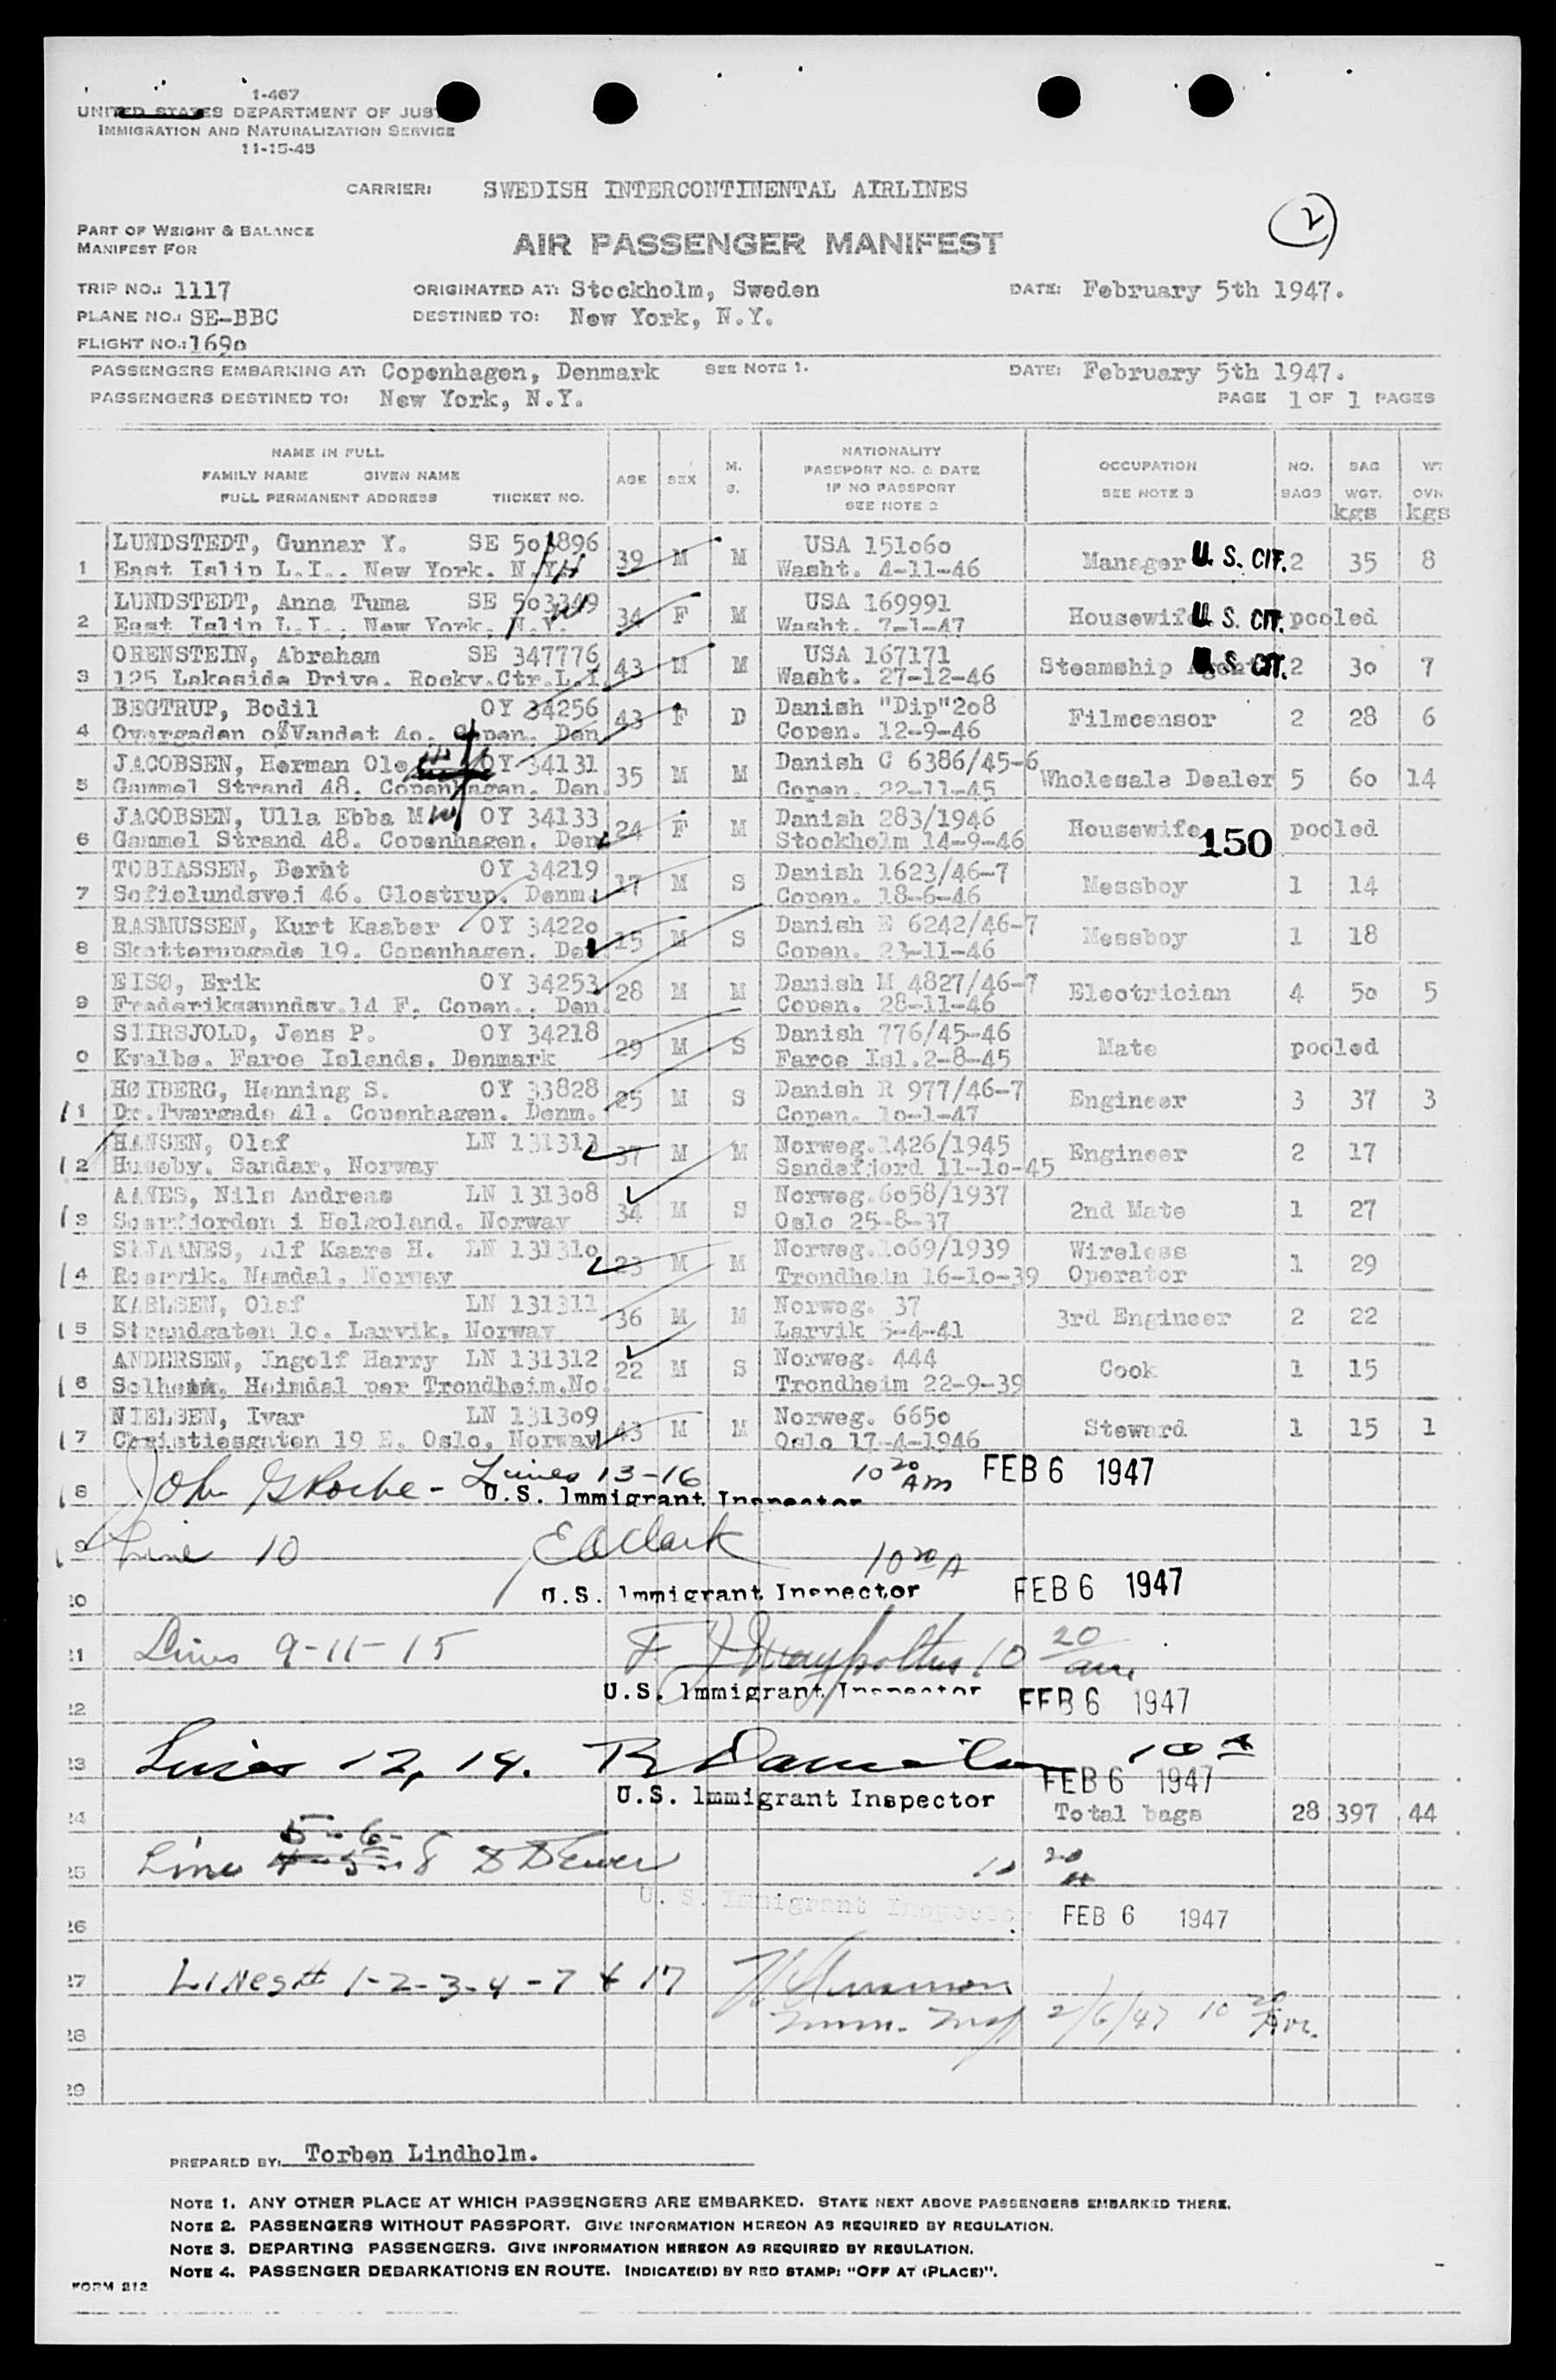 1-467
UNITED STATES DEPARTMENT OF JUST
IMMIGRATION AND NATURALIZATION SERVICE
11-15-45
CARRIER: SWEDISH INTERCONTINENTAL AIRLINES
2
PART OF WEIGHT & BALANCE
MANIFEST FOR
AIR PASSENGER MANIFEST
TRIP NO.: 1117 ORIGINATED AT: Stockholm, Sweden DATE: February 5th 1947.
PLANE NO.: SE-BBC DESTINED TO: New York, N.Y.
FLIGHT NO.: 1690
PASSENGERS EMBARKING AT: Copenhagen, Denmark SEE NOTE 1. DATE: February 5th 1947.
PASSENGERS DESTINED TO: New York, N.Y. PAGE 1 OF 1 PAGES
NAME IN FULL
FAMILY NAME GIVEN NAME
FULL PERMANENT ADDRESS TIICKET NO.
AGE SEX M. S.
NATIONALITY
PASSPORT NO. & DATE
IF NO PASSPORT
SEE NOTE 2
OCCUPATION
SEE NOTE 3
NO. BAGS
BAG WGT. kgs
WT OVN kgs
1 LUNDSTEDT, Gunnar Y. SE 503896 39 M M USA 151060 Manager U. S. CIT. 2 35 8
East Islip L.I.. New York. N.Y. H Washt. 4-11-46
2 LUNDSTEDT, Anna Tuma SE 503349 34 F M USA 169991 Housewife U. S. CIT. pooled
East Islip L.I., New York, N.Y. W Washt. 7-1-47
3 ORENSTEIN, Abraham SE 347776 43 M M USA 167171 Steamship Agent U. S. CIT. 2 30 7
125 Lakeside Drive. Rockv.Ctr.L.I. Washt. 27-12-46
4 BEGTRUP, Bodil OY 34256 43 F D Danish "Dip"208 Filmcensor 2 28 6
Overgaden o/Vandet 40. Copen. Den Copen. 12-9-46
5 JACOBSEN, Herman Ole OY 34131 35 M M Danish G 6386/45-6 Wholesale Dealer 5 60 14
Gammel Strand 48. Copenhagen. Den. Copen. 22-11-45
6 JACOBSEN, Ulla Ebba M W OY 34133 24 F M Danish 283/1946 Housewife 150 pooled
Gammel Strand 48. Copenhagen. Den Stockholm 14-9-46
7 TOBIASSEN, Bernt OY 34219 17 M S Danish 1623/46-7 Messboy 1 14
Sofielundsvej 46. Glostrup. Denm. Copen. 18-6-46
8 RASMUSSEN, Kurt Kaaber OY 34220 15 M S Danish E 6242/46-7 Messboy 1 18
Skotterupgade 19. Copenhagen. Den. Copen. 23-11-46
9 EISØ, Erik OY 34253 28 M M Danish M 4827/46-7 Electrician 4 50 5
Frederikssundsv.14 F. Copen.. Den. Copen. 28-11-46
0 SIIRSJOLD, Jens P. OY 34218 29 M S Danish 776/45-46 Mate pooled
Kvalbø. Faroe Islands. Denmark Faroe Isl.2-8-45
11 HØIBERG, Henning S. OY 33828 25 M S Danish R 977/46-7 Engineer 3 37 3
Dr.Tværgade 41. Copenhagen. Denm. Copen. 10-1-47
12 HANSEN, Olaf LN 131313 37 M M Norweg.1426/1945 Engineer 2 17
Huseby. Sandar, Norway Sandefjord 11-10-45
13 AANES, Nils Andreas LN 131308 34 M S Norweg.6058/1937 2nd Mate 1 27
Soerfjorden i Helgoland. Norway Oslo 25-8-37
14 Alf Kaare H. LN 131310 23 M M Norweg.1069/1939 Wireless 1 29
Roervik. Namdal. Norway Trondheim 16-10-39 Operator
15 KARLSEN, Olaf LN 131311 36 M M Norweg. 37 3rd Engineer 2 22
Strandgaten 10. Larvik, Norway Larvik 5-4-41
16 ANDERSEN, Ingolf Harry LN 131312 22 M S Norweg. 444 Cook 1 15
Solheim, Heimdal per Trondheim.No. Trondheim 22-9-39
17 NIELSEN, Ivar LN 131309 43 M M Norweg. 6650 Steward 1 15 1
Christiesgaten 19 E. Oslo, Norway Oslo 17-4-1946
18 John G Roche - Lines 13-16 10 20 AM FEB 6 1947
U.S. Immigrant Inspector
19 Line 10 E A Clark 10 20 A
20 U.S. Immigrant Inspector FEB 6 1947
21 Lines 9-11-15 10 20 am
22 U.S. Immigrant Inspector FEB 6 1947
23 Lines 12, 14. 10 A FEB 6 1947
U.S. Immigrant Inspector
24 Total bags 28 397 44
5-6-
25 Line 4-5-8 10 20 A
U. S. Immigrant Inspector
26 FEB 6 1947
27 LINES # 1-2-3-4-7 & 17
28 Imm. Insp 2/6/47 10 20 Am.
29
PREPARED BY: Torben Lindholm.
NOTE 1. ANY OTHER PLACE AT WHICH PASSENGERS ARE EMBARKED. STATE NEXT ABOVE PASSENGERS EMBARKED THERE.
NOTE 2. PASSENGERS WITHOUT PASSPORT. GIVE INFORMATION HEREON AS REQUIRED BY REGULATION.
NOTE 3. DEPARTING PASSENGERS. GIVE INFORMATION HEREON AS REQUIRED BY REGULATION.
NOTE 4. PASSENGER DEBARKATIONS EN ROUTE. INDICATE(D) BY RED STAMP: "OFF AT (PLACE)".
FORM 212